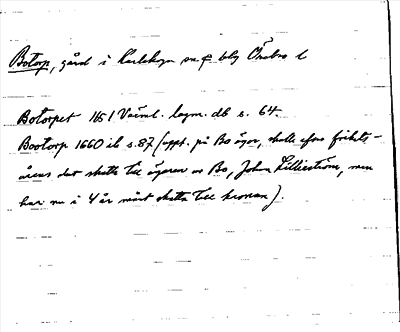 Botorp, gård i Karlskoga sn o bsg Örebro l
Botorpet 1651 Värml. lagm. db s. 64.
Bootorp 1660 ib s. 87 (uppt. på Bo ägor, skulle efter frihets-
årens slut skatta till ägaren av Bo, Johan Lillieström, men
har nu i 4 år mist skatta till kronan).